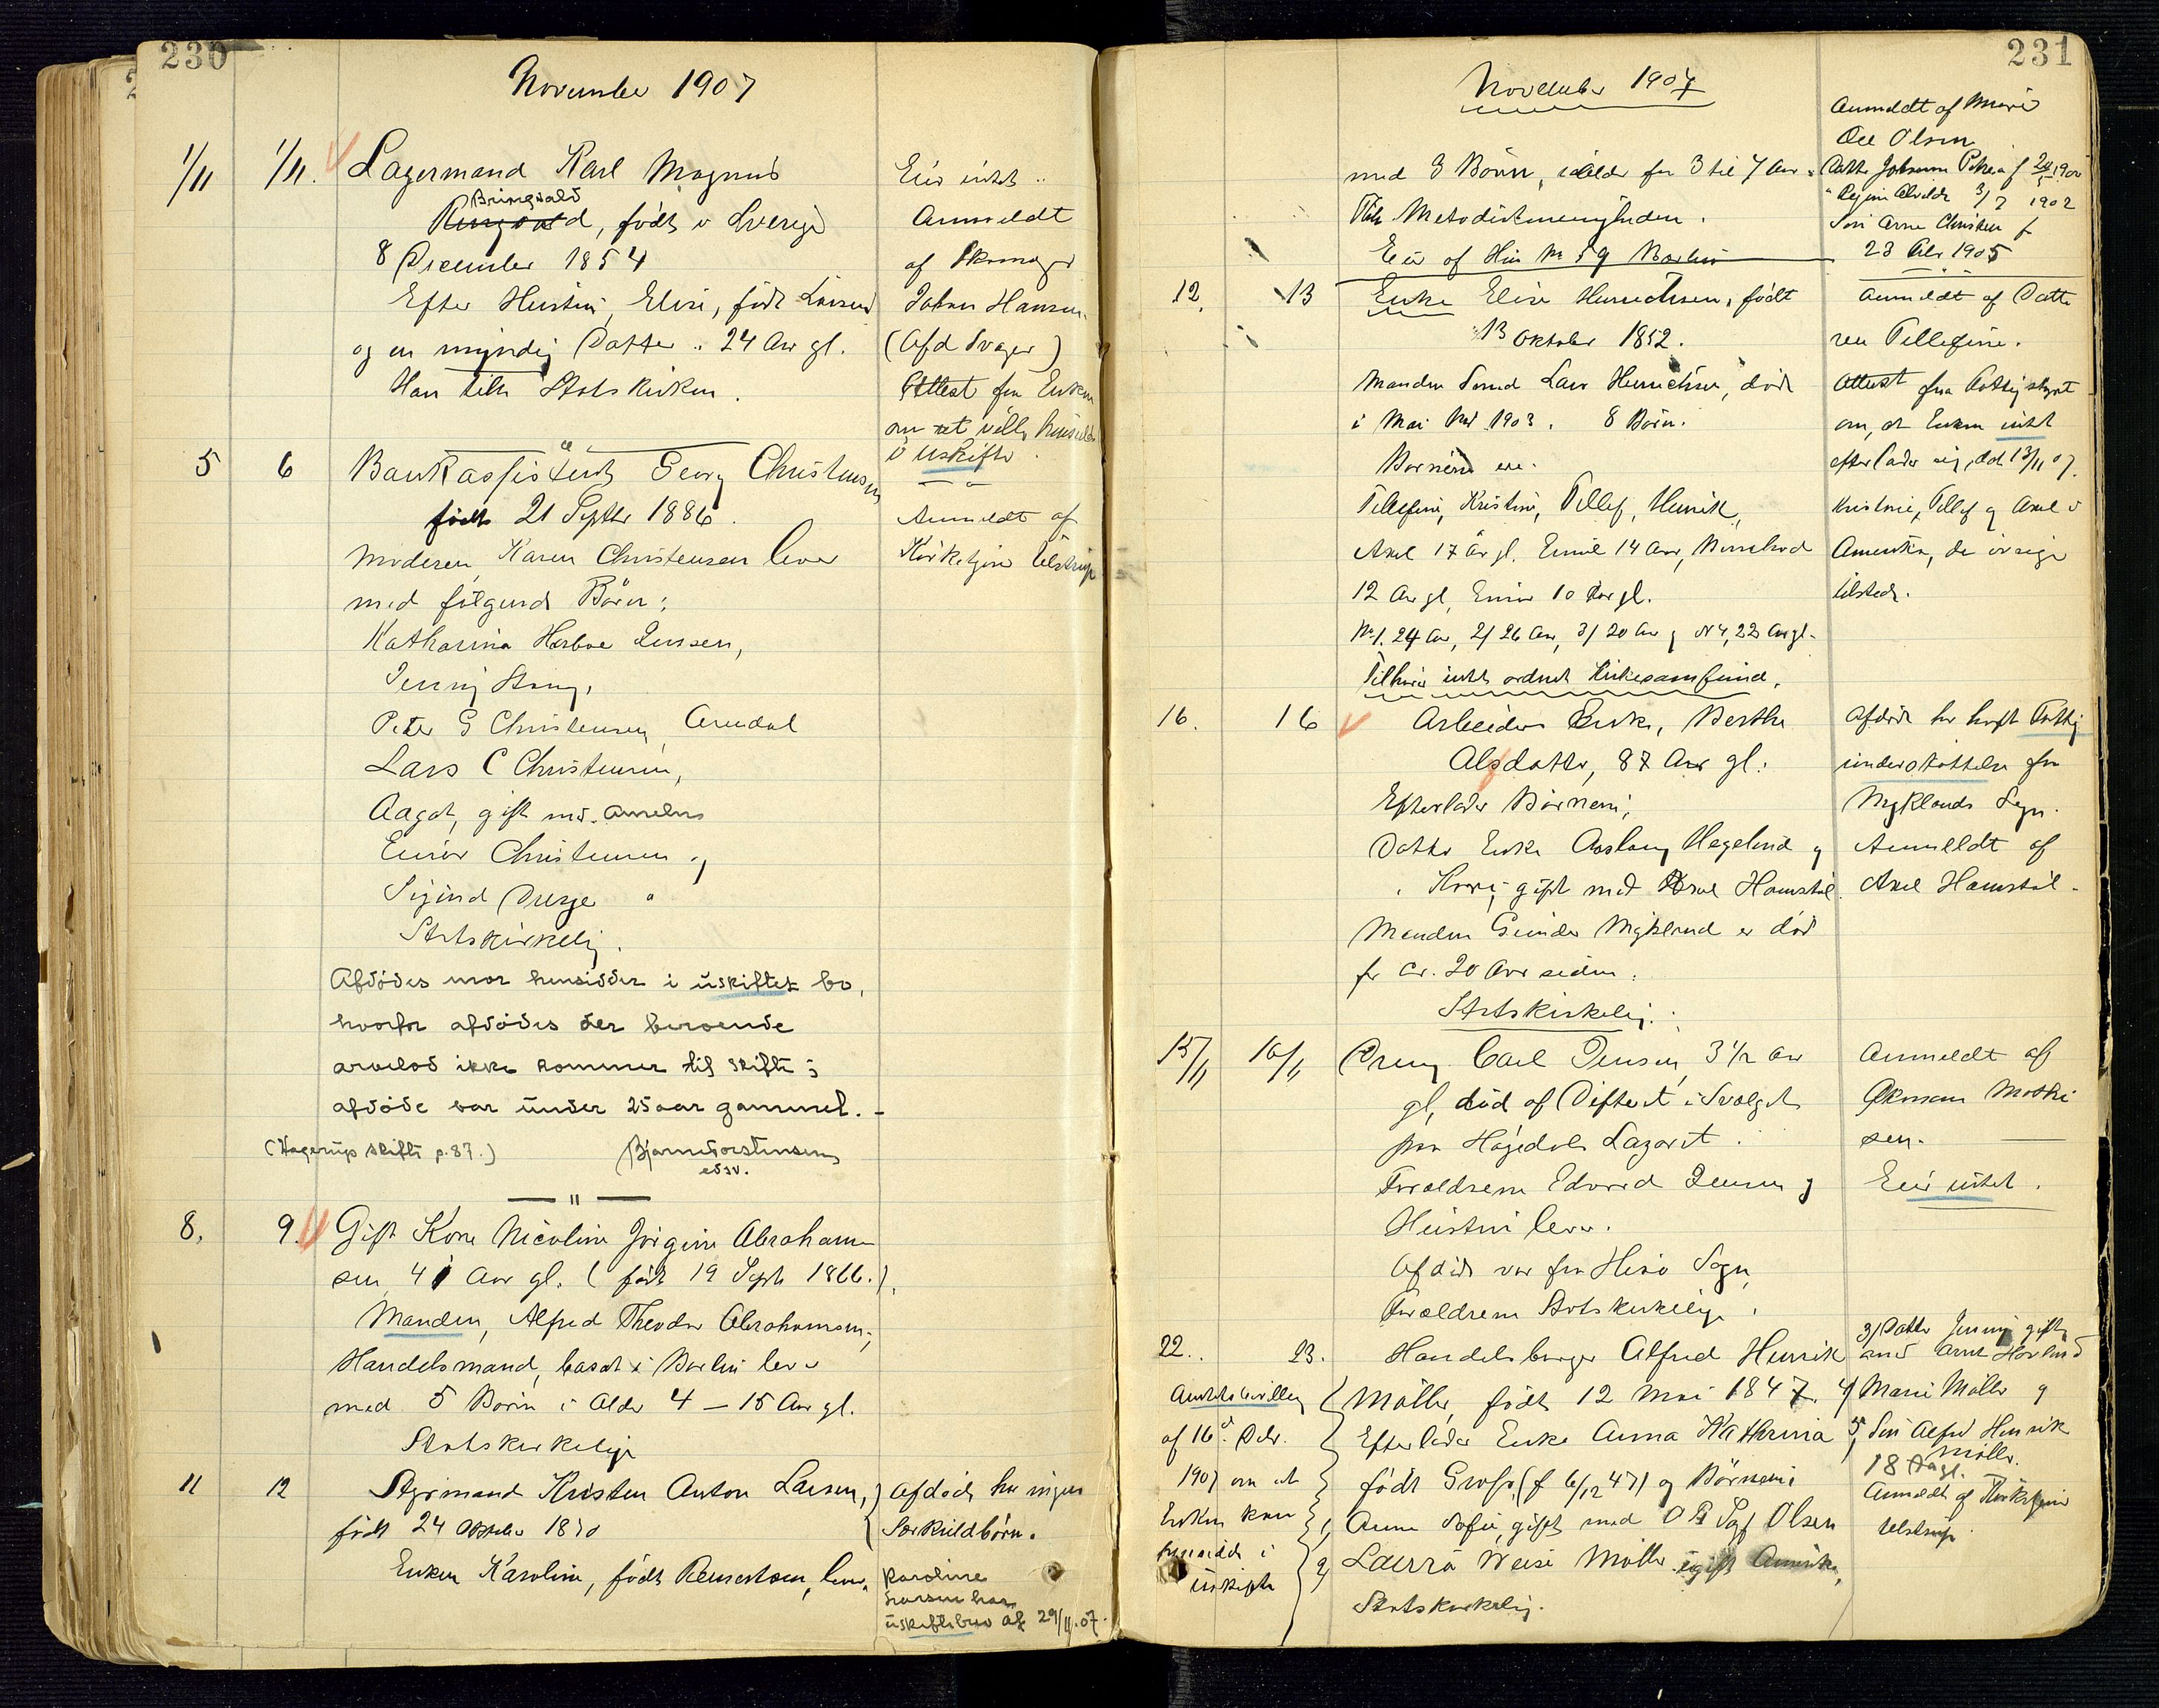 230
November 1907
1/11 1/11. Lagermand Karl Magnus
Bringvald
Ringvald, født i Sverige
8 December 1854
Efter Hustru, Elise, født Larsen
og en myndig Datter .. 24 Aar gl.
Han tilh Statskirken.
Eier intet ..
Anmeldt
af Skomager
Johan Hansen.
(Afd Svoger)
Attest fra Enken
om at ville hensidde
i uskifte.
5 6 Bankassistent Georg Christensen
født 21 Septbr 1886.
Moderen, Karen Christensen lever
med følgende Børn:
Katharina Horboe Jensen,
Jenny Stang,
Peter G Christensen, Arendal
Lars C Christensen,
Aagot, gift med. Amelns
Einar Christensen og
Sigurd Do
Statskirkelig.
Anmeldt af
Kirketjener Ulstrup
Afdødes mor hensidder i uskiftet bo,
hvorfor afdødes der beroende
arvelod ikke kommer til skifte;
afdøde var under 25 aar gammel. -
(Hagerups skifte p. 87.)
Bjarne Torstensen
edsv.
8. 9. Gift Kone Nicoline Jörgine Abraham-
sen 41 Aar gl. (født 19 Septr 1866.).
Manden, Alfred Theodor Abrahamsen,
Handelsmand, bosat i Barbu lever
med 5 Børn i Alder 4 - 15 Aar gl.
Statskirkelige
11 12 Styrmand Kristen Anton Larsen,
født 24 Oktober 1870
Enken Karoline, født Reinertsen, lever,
Afdøde har ingen
Særkuldbørn.
Karoline
Larsen har
uskiftebev af 29/11.07.
231
November 1907
med 3 Børn, i Alder fra 3 til 7 Aar.
Tilh Metodistmenigheden.
Anmeldt af Marie
Olsen
Datter Johanne Petrea f 1900
" Alvilde 3/7 1902
Søn Arne Christen f
23 1905
12. 13 Enke Elise Henrichsen, født
13 Oktober 1852.
Manden Lars Henrichsen, død
i Mai 1903. 8 Børn.
Børnene ere.
Tellefine, Kristine, Tellef, Henrik,
Axel 17 Aar gl. Emil 14 Aar,
12 Aar gl, Einar 10 Aar gl.
No 1. 24 Aar, 2/ 26 Aar, 3/ 20 Aar og N 4, 22 Aar gl.
Tilhører intet ordnet Kirkesamfund.
Anmeldt af Datte
ren Tellefine.
Attest fra Fattigstyret
om, at Enken intet
efterlader sig, dat 13/11 07.
Kristine, Tellef og Axel i
Amerika, de øvrige
tilstede.
16. 16 Arbeider Enke, Berthe
Alsdatter, 87 Aar gl.
Efterlader Børnene,
Datter Enke Aaslaug Hegelund og
" gift med Axel Hamstøl.
Manden Gunder Mykland er død
for cr. 20 Aar siden.
Statskirkelig.
Afdøde har havt Fattig
understøttelse fra
Myklands Sogn.
Anmeldt af
Axel Hamstøl.
15/11 16/11 Dreng Carl Jensen, 3 1/2 Aar
gl, død af Difterit i Svælget
paa Høgedals Lazaret.
Forældrene Edvard Jensen og
Hustru lever.
Afdøde var fra Hisø Sogn,
Forældrene Statskirkelige.
Anmeldt af
Økonom Mathi
sen.
Eier intet.
22. 23. Handelsborger Alfred Henrik
Møller, født 12 Mai 1847.
Efterlader Enke Anna Katharina
født Gross, (f 6/12 47) og Børnene
1, Anna Sofie, gift med O Olsen
2, Laura Weise Møller ugift Amerika,
Statskirkelig.
Amtsbevilling
af 16d. Debr.
1907 om at
Enken kan
hensidde i
uskifte
3/ Datter Jenny gift
med Arnt Havlund
4/ Marie Møller og
5, Søn Alfred Henrik
Møller.
18 Aar gl.
Anmeldt af Kirketjener
Ulstrup.